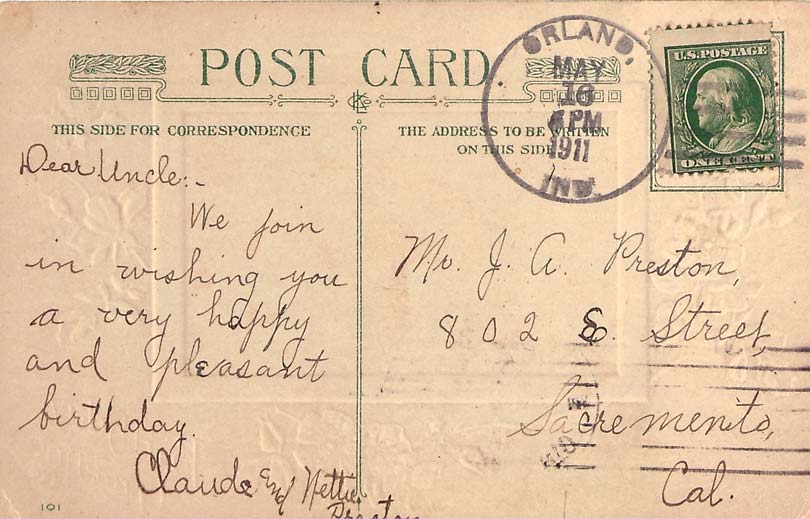 POST CARD.
ORLAND,
MAY
16
4 PM
1911
IND.
U.S. POSTAGE
ONE CENT
THIS SIDE FOR CORRESPONDENCE
THE ADDRESS TO BE WRITTEN
ON THIS SIDE
Dear Uncle:-
We join
in wishing you
a very happy
and pleasant
birthday.
Claude and Nettie
Preston
Mr. J. A. Preston,
802 E. Street,
Sacremento,
Cal.
101